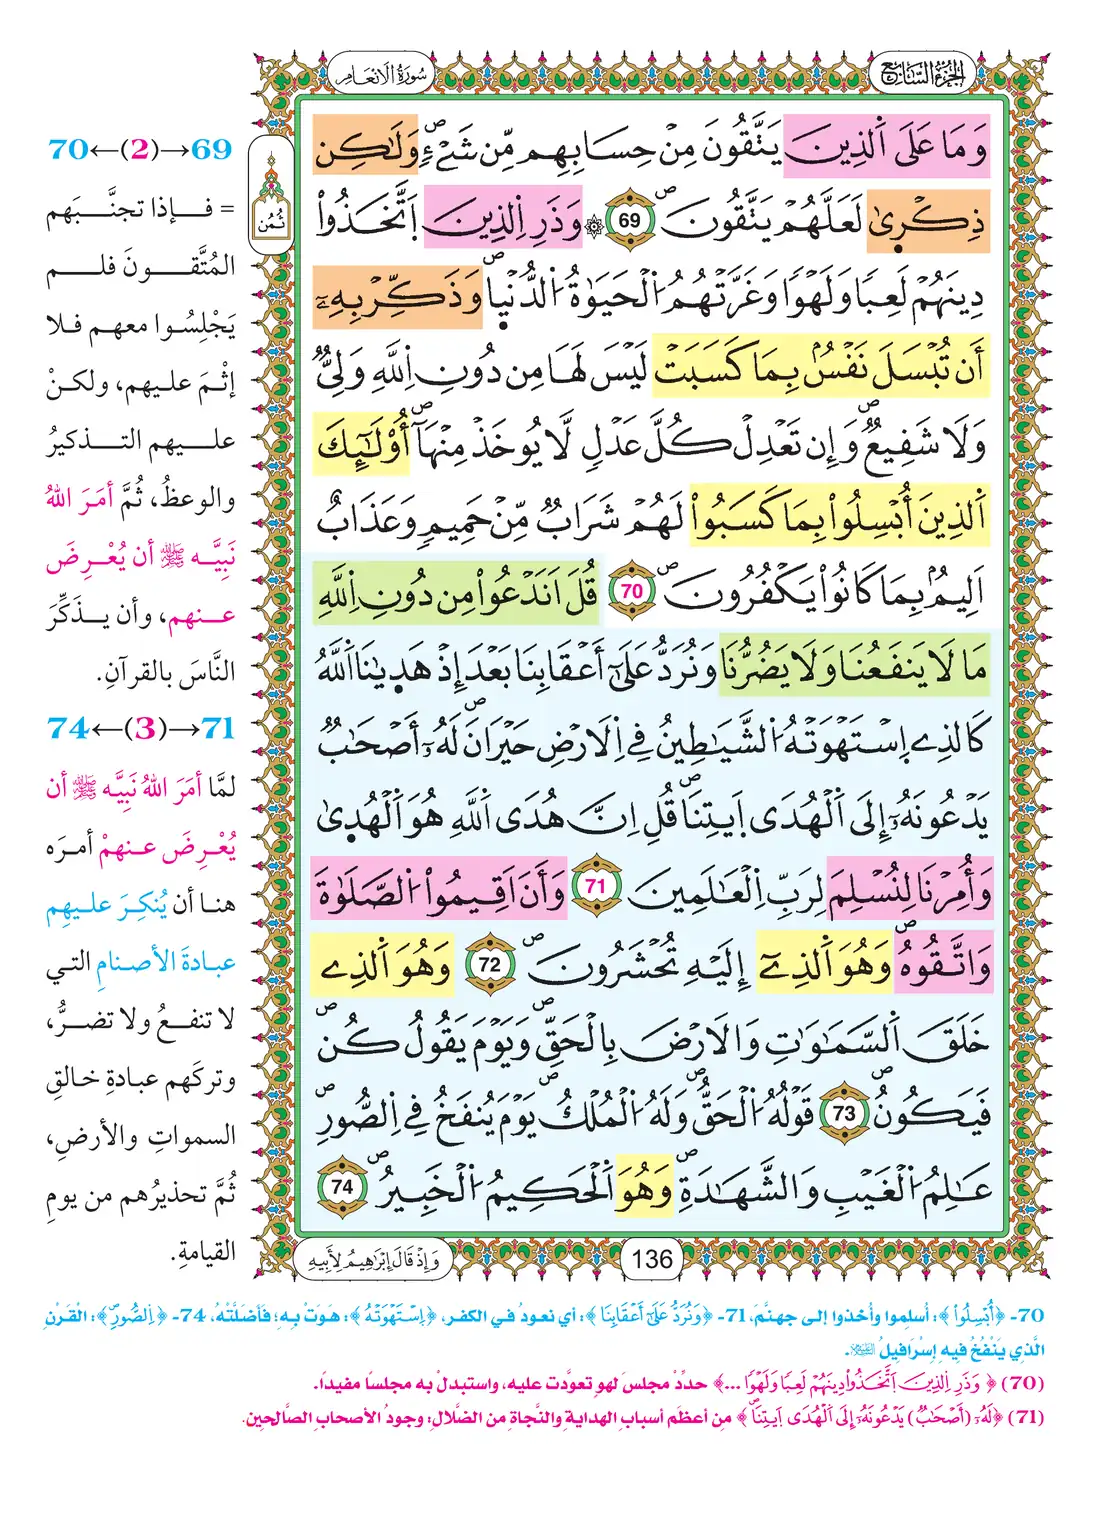 الجزء السابع
سورة الأنعام
وَمَا عَلَى اَلذِينَ يَتَّقُونَ مِنْ حِسَابِهِم مِّن شَيْءٖ وَلَٰكِن
ذِكْر۪يٰ لَعَلَّهُمْ يَتَّقُونَۖ 69 ۞ وَذَرِ اِلذِينَ اَتَّخَذُواْ
دِينَهُمْ لَعِباٗ وَلَهْواٗ وَغَرَّتْهُمُ اُلْحَيَوٰةُ اُلدُّنْي۪اۖ وَذَكِّرْ بِهِۦٓ
أَن تُبْسَلَ نَفْسُۢ بِمَا كَسَبَتْ لَيْسَ لَهَا مِن دُونِ اِللَّهِ وَلِيّٞ
وَلَا شَفِيعٞۖ وَإِن تَعْدِلْ كُلَّ عَدْلٖ لَّا يُوخَذْ مِنْهَآۖ أُوْلَٰٓئِكَ
اَلذِينَ أُبْسِلُواْ بِمَا كَسَبُواْ لَهُمْ شَرَابٞ مِّنْ حَمِيمٖ وَعَذَابٌ
اَلِيمُۢ بِمَا كَانُواْ يَكْفُرُونَۖ 70 قُلَ اَنَدْعُواْ مِن دُونِ اِللَّهِ
مَا لَا يَنفَعُنَا وَلَا يَضُرُّنَا وَنُرَدُّ عَلَىٰٓ أَعْقَابِنَا بَعْدَ إِذْ هَد۪يٰنَا اَللَّهُ
كَالذِے اِ۪سْتَهْوَتْهُ اُلشَّيَٰطِينُ فِے اِلَارْضِ حَيْرَانَ لَهُۥٓ أَصْحَٰبٞ
يَدْعُونَهُۥٓ إِلَى اَلْهُدَى اَيتِنَاۖ قُلِ اِنَّ هُدَى اَللَّهِ هُوَ اَلْهُد۪يٰ
وَأُمِرْنَا لِنُسْلِمَ لِرَبِّ اِلْعَٰلَمِينَ 71 وَأَنَ اَقِيمُواْ اُلصَّلَوٰةَ
وَاتَّقُوهُۖ وَهُوَ اَلذِےٓ إِلَيْهِ تُحْشَرُونَۖ 72 وَهُوَ اَلذِے
خَلَقَ اَلسَّمَٰوَٰتِ وَالَارْضَ بِالْحَقِّۖ وَيَوْمَ يَقُولُ كُنۖ
فَيَكُونُۖ 73 قَوْلُهُ اُلْحَقُّۖ وَلَهُ اُلْمُلْكُۖ يَوْمَ يُنفَخُ فِے اِلصُّورِۖ
عَٰلِمُ اُلْغَيْبِ وَالشَّهَٰدَةِۖ وَهُوَ اَلْحَكِيمُ اُلْخَبِيرُۖ 74
وَإِذْ قَالَ إِبْرَاهِيمُ لِأَبِيهِ
136
ثُمُن
69→(2)←70
= فإذا تجنَّبَهم
المُتَّقونَ فلم
يَجْلِسُوا معهم فلا
إثْمَ عليهم، ولكنْ
عليهم التذكيرُ
والوعظُ، ثُمَّ أمَرَ اللهُ
نَبِيَّه ﷺ أن يُعْرِضَ
عنهم، وأن يذَكِّرَ
النَّاسَ بالقرآنِ.
71→(3)←74
لمَّا أمَرَ اللهُ نَبِيَّه ﷺ أن
يُعْرِضَ عنهمْ أمرَه
هنا أن يُنكِرَ عليهِم
عبادةَ الأصنامِ التي
لا تنفعُ ولا تضرُّ،
وتركَهم عبادةِ خالقِ
السمواتِ والأرضِ،
ثُمَّ تحذيرُهم من يومِ
القيامةِ.
70- ﴿أُبْسِلُواْ﴾: أسلموا وأخذوا إلى جهنَّمَ، 71- ﴿وَنُرَدُّ عَلَىٰٓ أَعْقَابِنَا﴾: أي نعودُ في الكفرِ، ﴿اِسْتَهْوَتْهُ﴾: هَوَتْ بِه؛ فَأضَلَّتْهُ، 74- ﴿اِلصُّورِۖ﴾: القَرْنِ
الَّذِي يَنْفُخُ فِيهِ إِسْرَافِيلُ عليه السلام.
(70) ﴿ وَذَرِ اِلذِينَ اَتَّخَذُواْ دِينَهُمْ لَعِباٗ وَلَهْواٗ ...﴾ حدِّدْ مجلسَ لهوٍ تعوَّدت عليه، واستبدلْ به مجلسًا مفيدًا.
(71) ﴿لَهُۥٓ (أَصْحَٰبٞ) يَدْعُونَهُۥٓ إِلَى اَلْهُدَى اَيتِنَاۖ ﴾ من أعظَم أسبابِ الهدايةِ والنَّجاةِ من الضَّلالِ: وجودُ الأصحابِ الصَّالحِين.